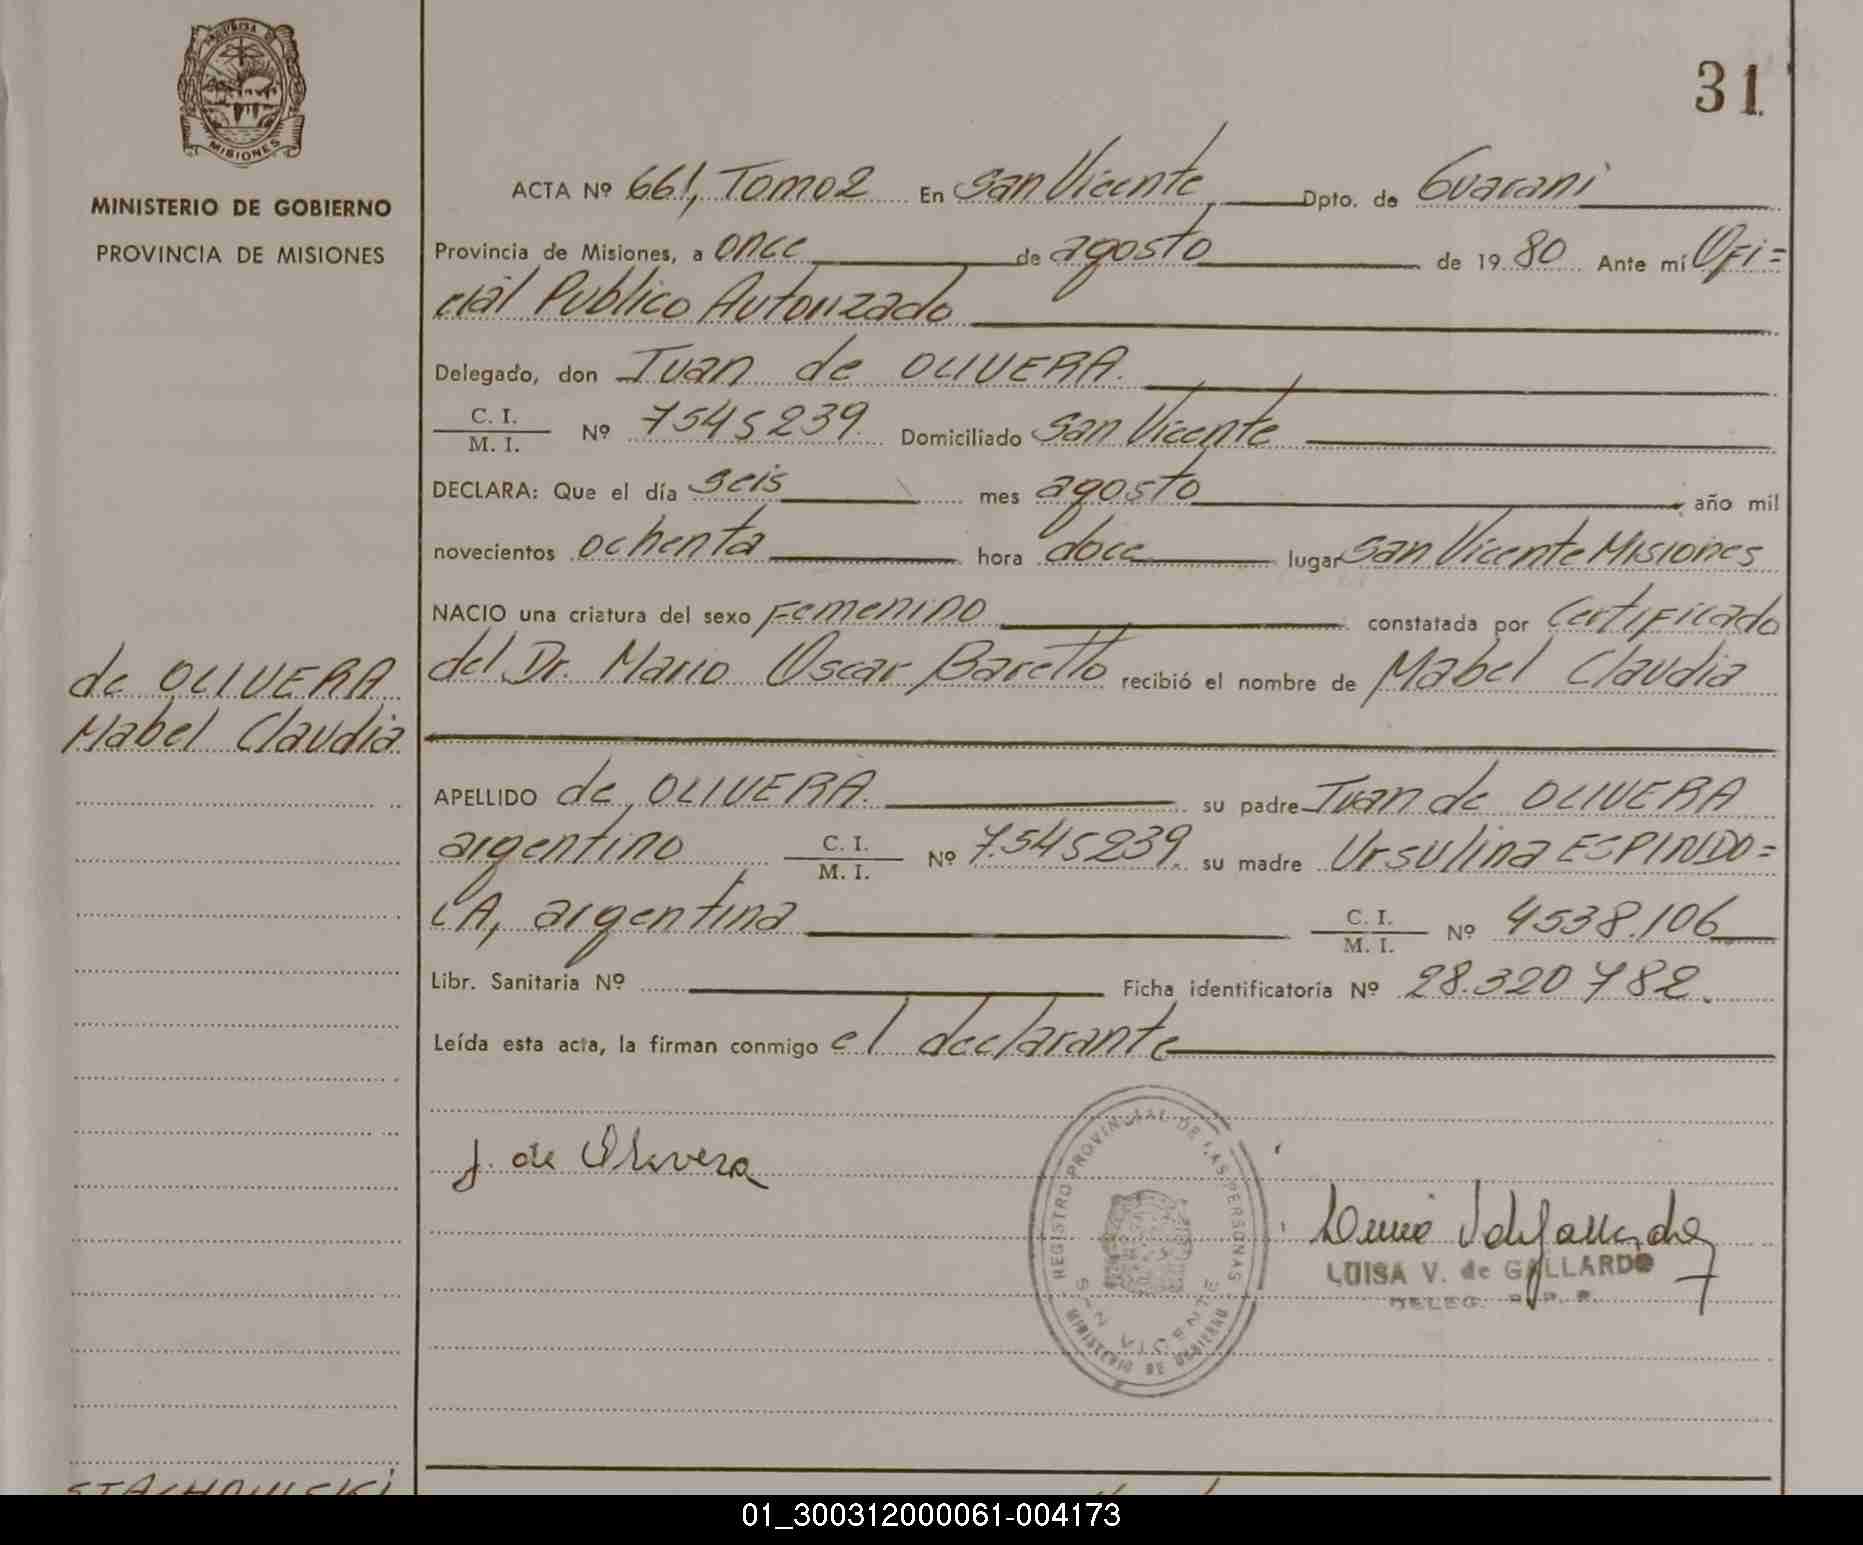 31
PROVINCIA DE
MISIONES
MINISTERIO DE GOBIERNO
PROVINCIA DE MISIONES
ACTA Nº 661, Tomo 2 En San Vicente Dpto. de Guarani
Provincia de Misiones, a once de agosto de 19 80 Ante mí Ofi=
cial Publico Autorizado
Delegado, don Juan de OLIVERA.
C. I.
M. I. Nº 7545239. Domiciliado San Vicente
DECLARA: Que el día seis mes agosto año mil
novecientos ochenta hora doce lugar San Vicente Misiones
NACIO una criatura del sexo Femenino constatada por Certificado
del Dr. Mario Oscar Baretto recibió el nombre de Mabel Claudia
de OLIVERA
Mabel Claudia
APELLIDO de OLIVERA. su padre Juan de OLIVERA
argentino C. I.
M. I. Nº 7.545239. su madre Ursulina ESPINDO=
LA, argentina C. I.
M. I. Nº 4538.106
Libr. Sanitaria Nº Ficha identificatoria Nº 28.320782.
Leída esta acta, la firman conmigo el declarante
J. de Olivera
REGISTRO PROVINCIAL DE LAS PERSONAS
SAN VICENTE
MINISTERIO DE GOBIERNO
LUISA V. de GALLARDO
DELEG. R. P. P.
01_300312000061-004173